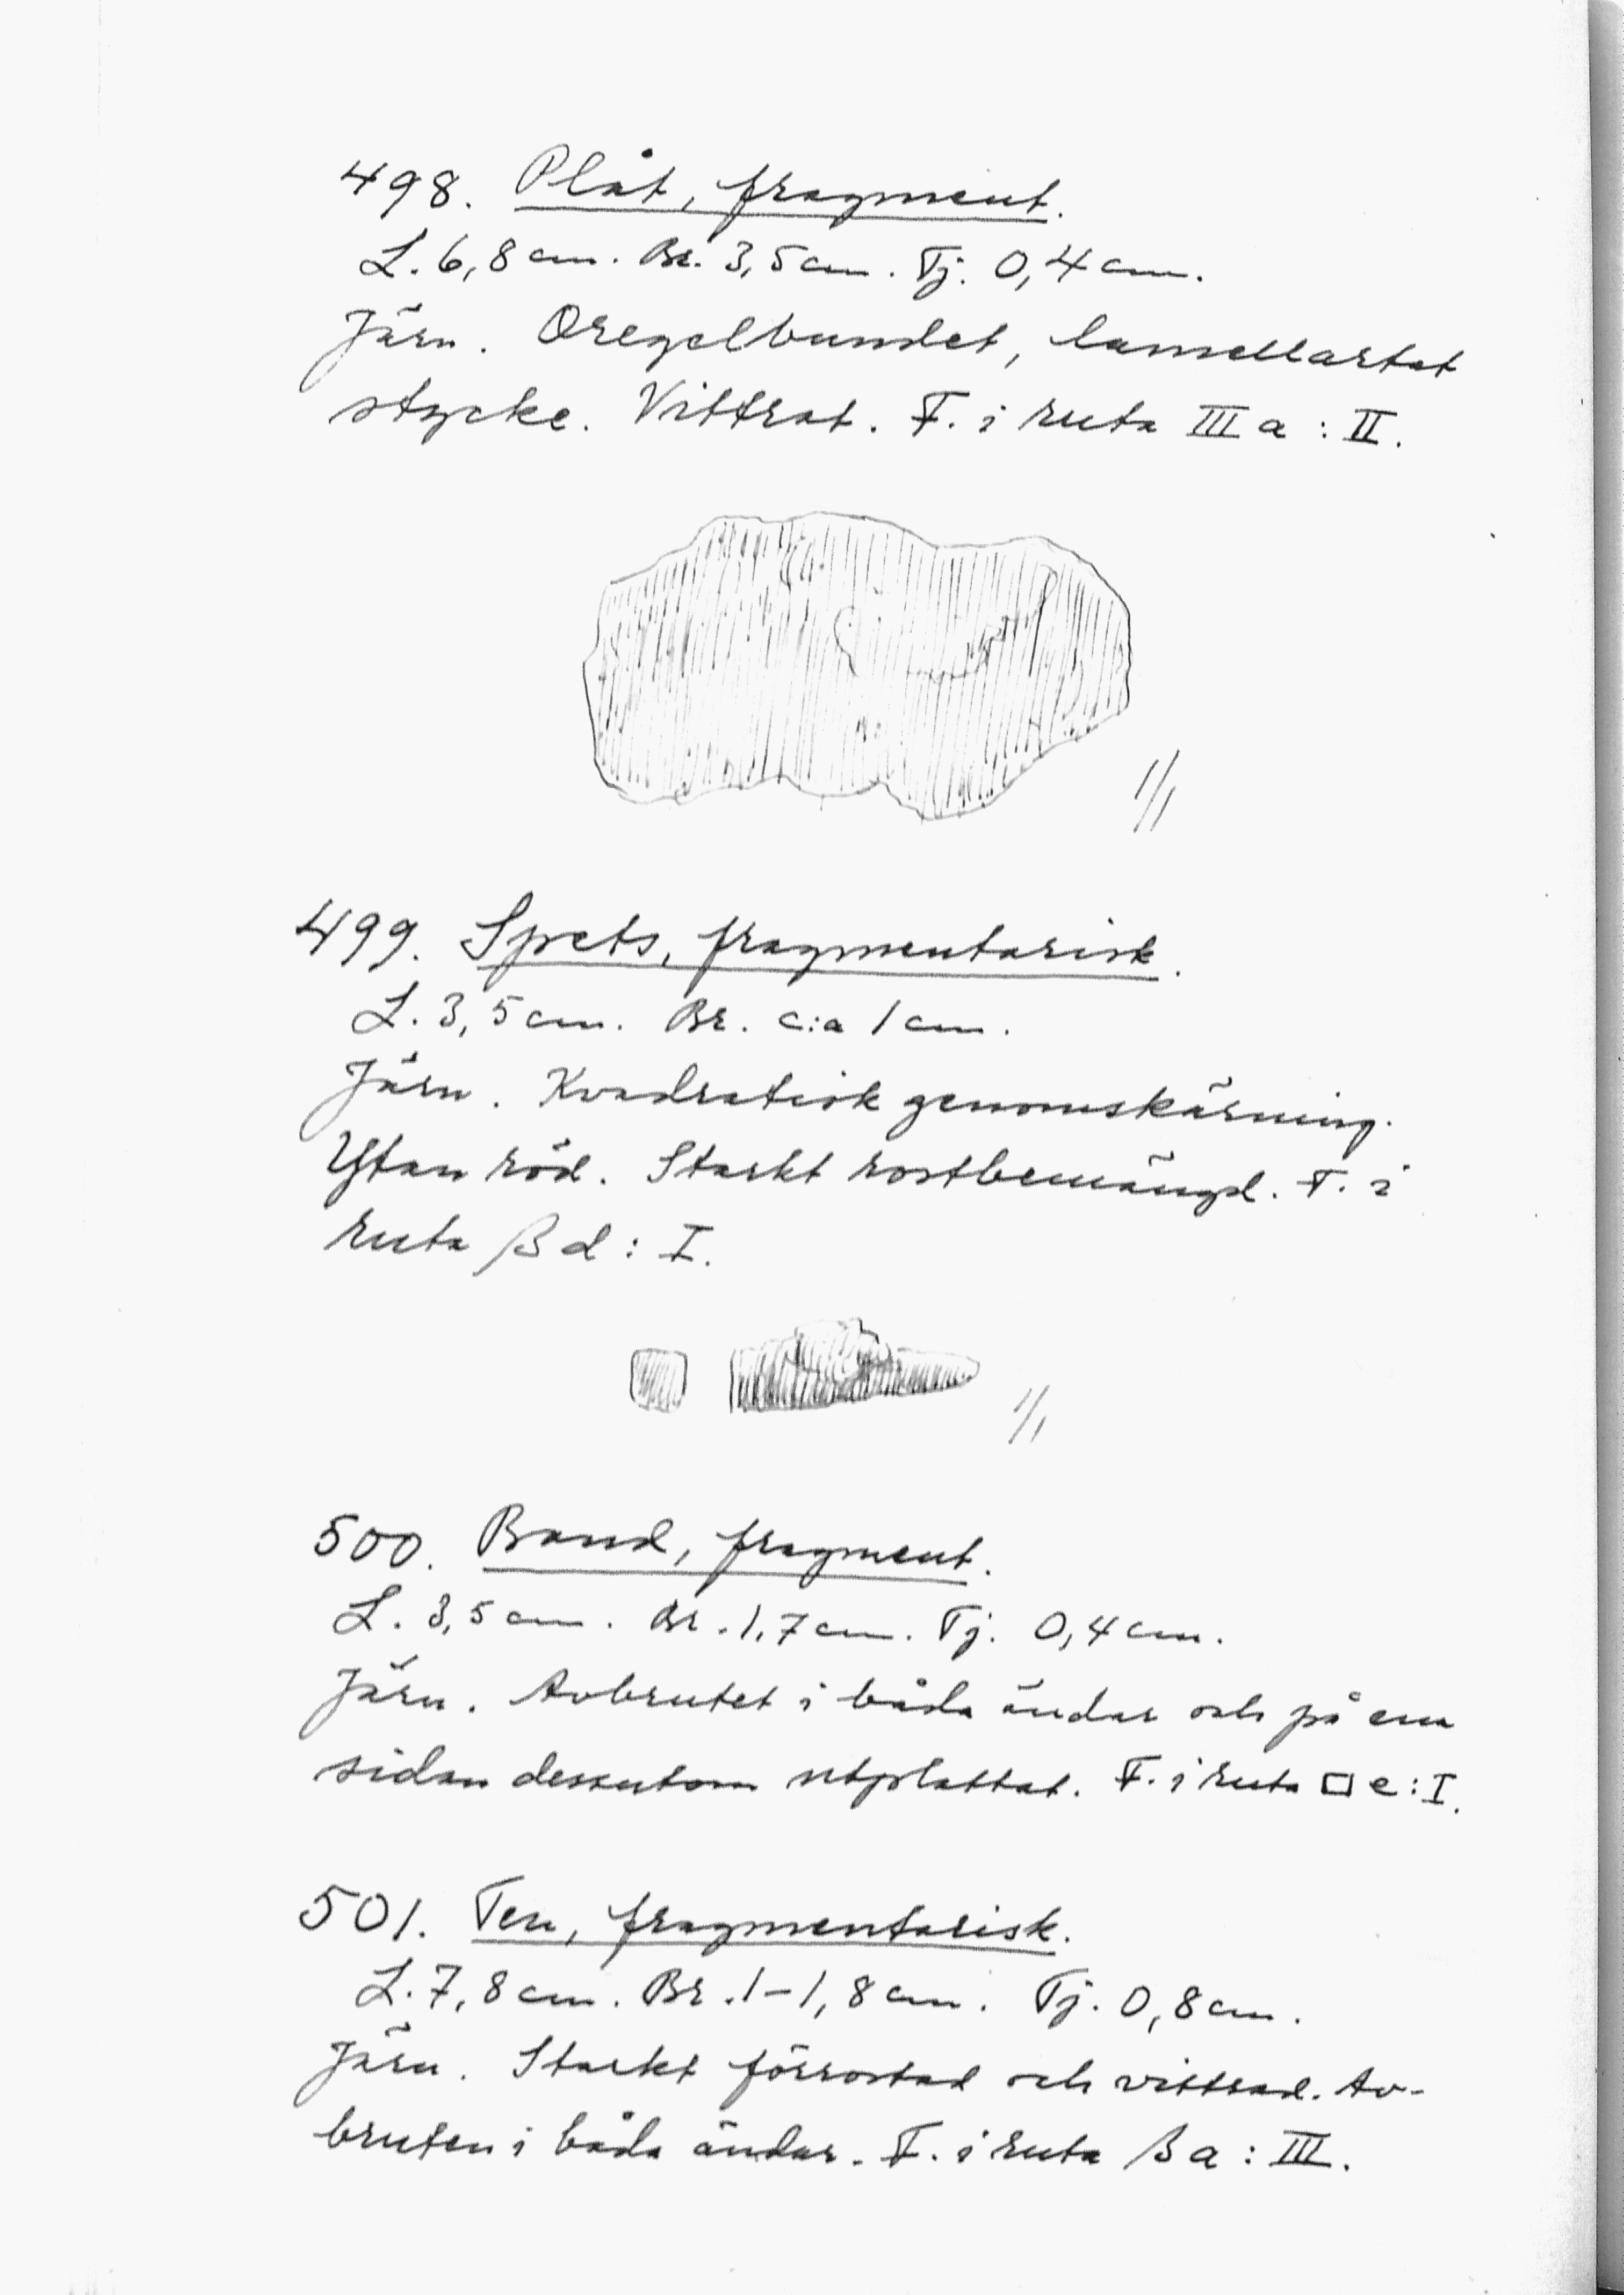 498. Plåt, fragment.
L. 6,8 cm. Br. 3,5 cm. Tj. 0,4 cm.
Järn. Oregelbundet, lamellartat
stycke. Vittrat. F. i ruta III a : II.
1/1
499. Spets, fragmentarisk.
L. 3,5 cm. Br. c:a 1 cm.
Järn. Kvadratisk genomskärning.
Ytan röd. Starkt rostbemängd. F. i
ruta β d : I.
1/1
500. Band, fragment.
L. 3,5 cm. Br. 1,7 cm. Tj. 0,4 cm.
Järn. Avbrutet i båda ändar och på ena
sidan dessutom utplattat. F. i ruta □ e : I.
501. Ten, fragmentarisk.
L. 7,8 cm. Br. 1-1,8 cm. Tj. 0,8 cm.
Järn. Starkt förrostad och vittrad. Av-
bruten i båda ändar. F. i ruta β a : III.